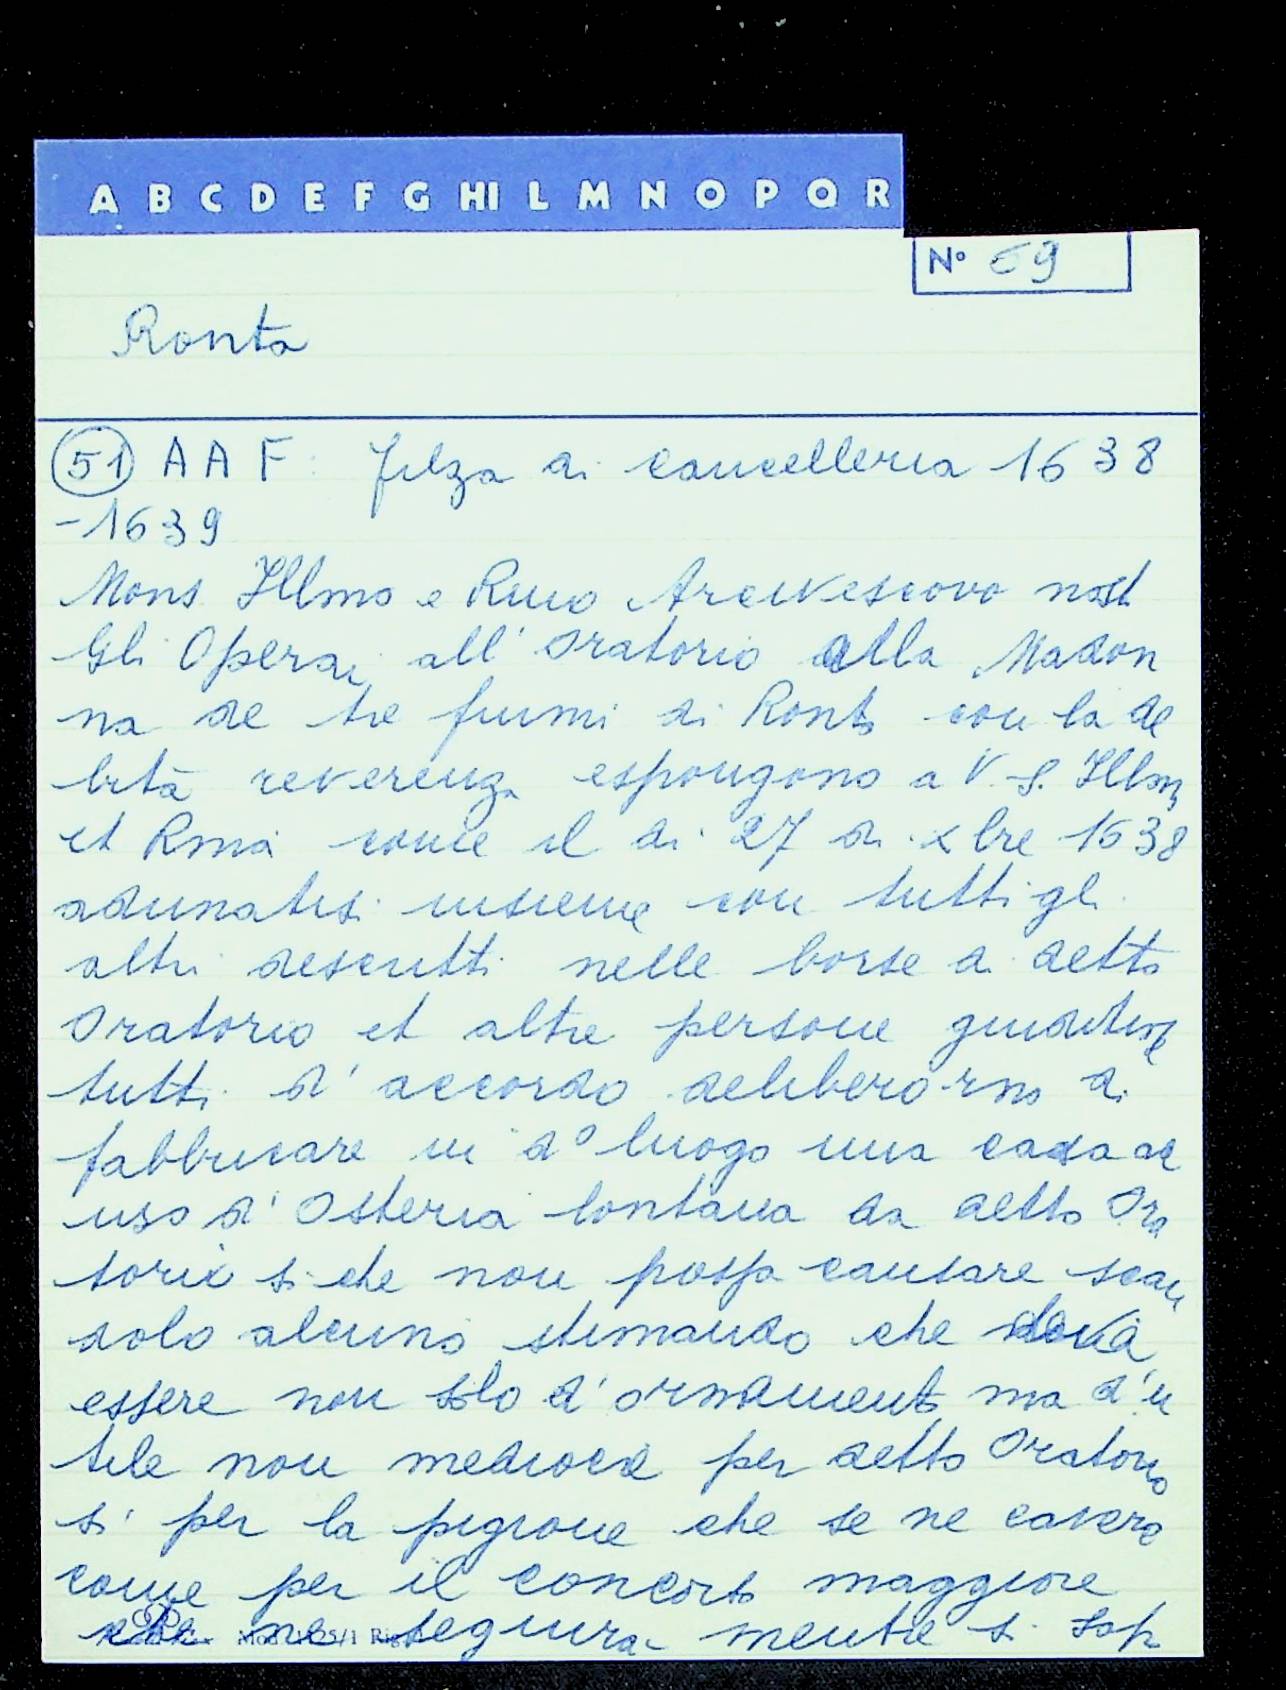 A B C D E F G HI L M N O P Q R
N° 59
Ronta
51 A A F: filza di cancelleria 1638
-1639
Mons Illmo e Rmo Arcivescovo nost
Gli Operai all'Oratorio alla Madon
na de tre fiumi di Ronta con la de
bita reverenza espongono a V. S. Illma
et Rma come il di 27 di xbre 1638
adunatisi insieme con tutti gli
altri descritti nelle borse di detto
Oratorio et altre persone
tutti d'accordo deliberorno di
fabbricare in d° luogo una casa ad
uso d'Osteria lontana da detto Ora
torio si che non possa causare scan
dolo alcuno stimando che deva
essere non solo d'ornamento ma d'u
tile non mediocre per detto Oratorio
si per la pigione che se ne cavera
come per il concorso maggiore
che ne seguira mentre si sap